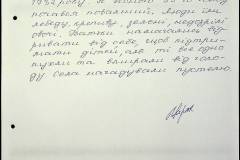 1932 року
почався повальний. Люди їли
лободу, кропиву, зелені, недозрілі
овочі. Батьки намагались від-
ривати від себе, щоб підтри-
мати дітей, але ті все одно
пухли та вмирали від голо-
ду. Села нагадували пустелю.